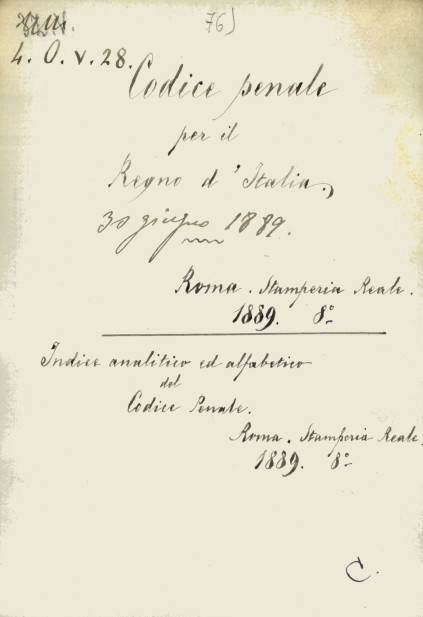 76)
4. O. v. 28.
Codice penale
per il
Regno d'Italia.
30 giugno 1889.
Roma. Stamperia Reale.
1889. 8°
Indice analitico ed alfabetico
del
Codice Penale.
Roma. Stamperia Reale.
1889. 8°
C.